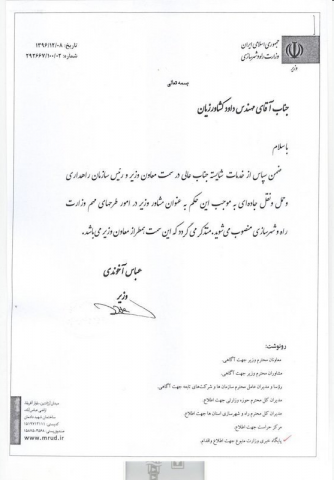 جمهوری اسلامی ایران
وزارت راه و شهرسازی
وزیر
تاریخ: ۱۳۹۶/۱۲/۰۸
شماره: ۲۹۲۶۶۷/۱۰۰/۰۲
بسمه تعالی
جناب آقای مهندس داود کشاورزیان
با سلام
ضمن سپاس از خدمات شایسته جناب عالی در سمت معاون وزیر و رئیس سازمان راهداری
و حمل و نقل جاده‌ای به موجب این حکم به عنوان مشاور وزیر در امور طرحهای مهم وزارت
راه و شهرسازی منصوب می‌شوید. متذکر می‌گردد که این سمت همطراز معاون وزیر می‌باشد.
عباس آخوندی
وزیر
رونوشت:
معاونان محترم وزیر جهت آگاهی.
مشاوران محترم وزیر جهت آگاهی.
رؤسا و مدیران عامل محترم سازمان ها و شرکت‌های تابعه جهت آگاهی.
مدیران کل محترم حوزه وزارتی جهت اطلاع.
مدیران کل محترم راه و شهرسازی استان ها جهت اطلاع.
مرکز حراست جهت اطلاع.
پایگاه خبری وزارت متبوع جهت اطلاع و اقدام.
میدان آرژانتین، بلوار آفریقا،
اراضی عباس آباد،
ساختمان شهید دادمان
www.mrud.ir